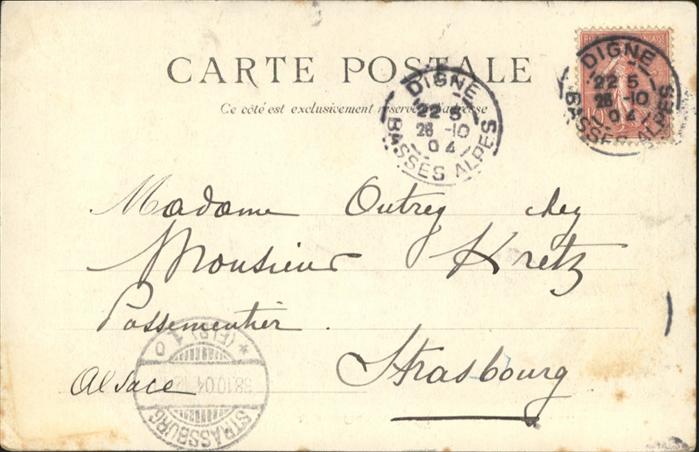 CARTE POSTALE
Ce côté est exclusivement réservé à l'adresse
DIGNE
22 5
26 -10
04
BASSES ALPES
DIGNE
22 5
26 -10
04
BASSES ALPES
10
Madame Outrey chez
Monsieur Kretz
Passementier.
Strasbourg
Alsace
* (ELS) 1 O
.10.04
STRASSBURG